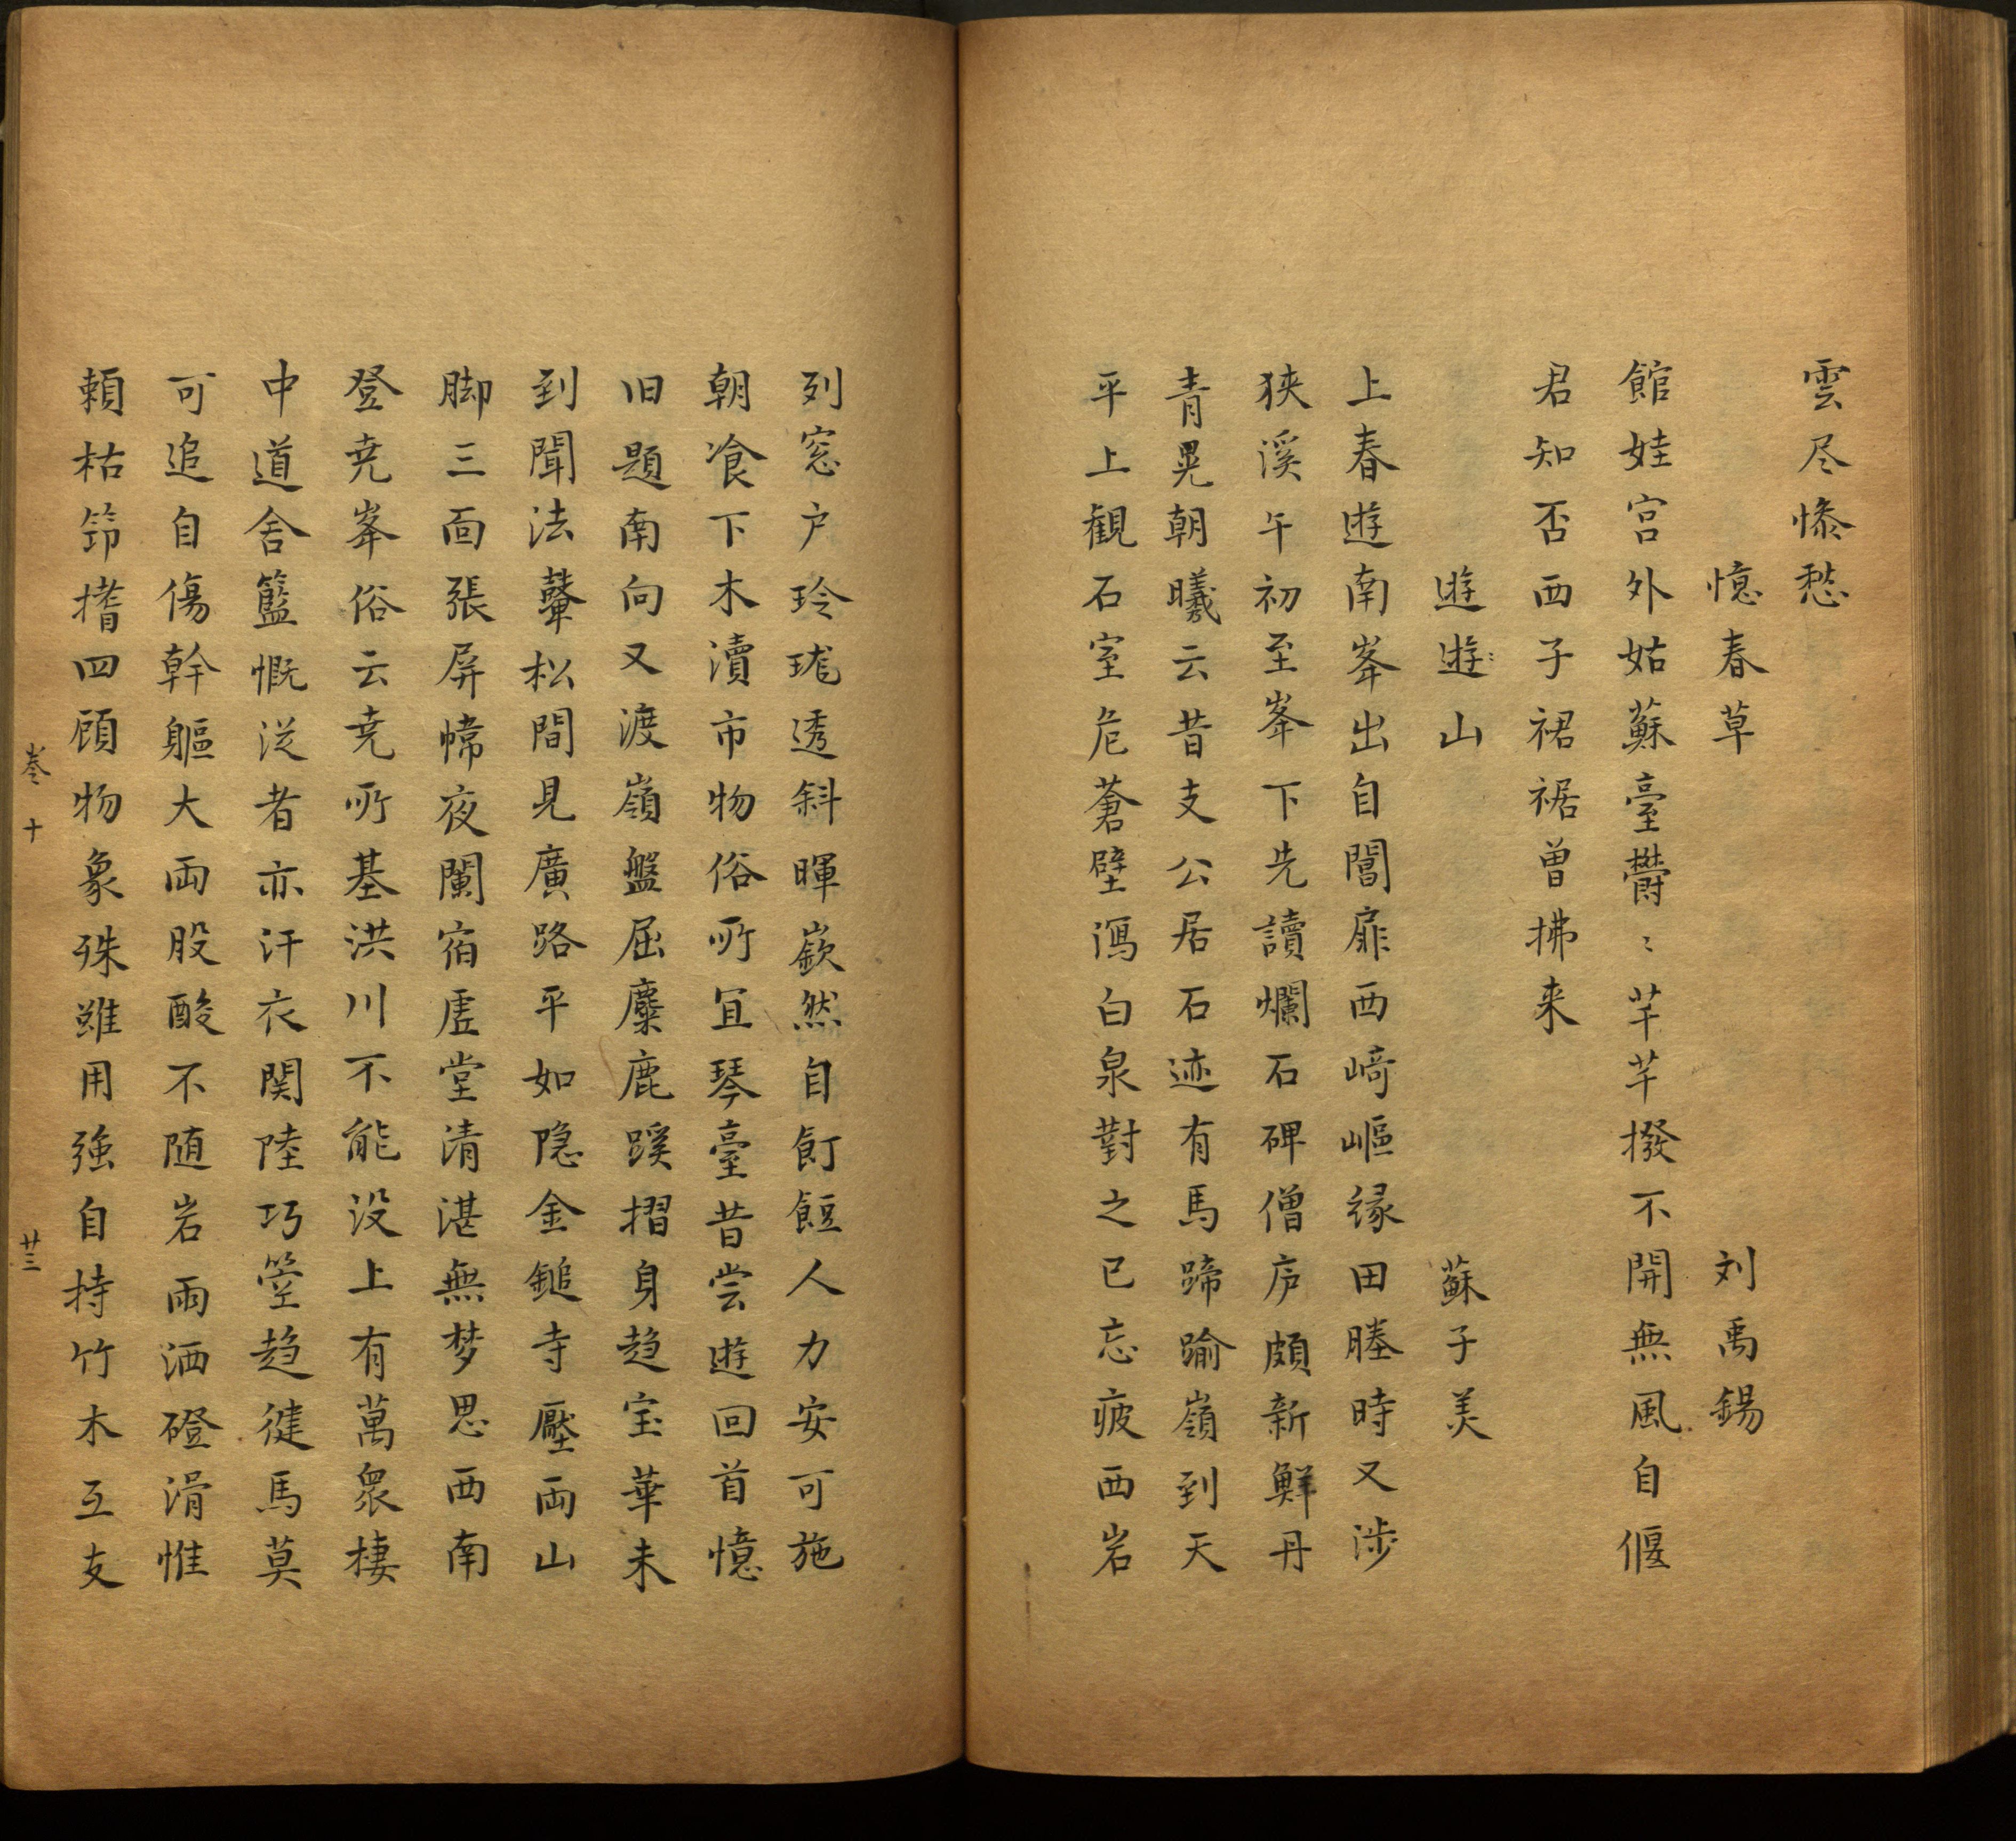 雲尽慘愁
憶春草　刘禹錫
館娃宮外姑蘇臺鬱〻芊芊撥不開無風自偃
君知否西子裙裾曽拂来
遊遊山　蘇子美
上春遊南峯出自閶扉西﨑嶇縁田塍時又渉
狭溪午初至峯下先讀爛石碑僧庐頗新鮮丹
青晃朝曦云昔支公居石迹有馬蹄踰嶺到天
平上観石室危蒼壁瀉白泉對之已忘疲西岩
列窓户玲珑透斜暉嵚然自飣餖人力安可施
朝飡下木瀆市物俗所宜琴臺昔尝遊回首憶
旧題南向又渡嶺盤屈麋鹿蹊摺身趋宝華未
到聞法鼙松間見廣路平如隐金鎚寺壓両山
脚三面張屏幃夜闌宿虚堂清湛無梦思西南
登尭峯俗云尭所基洪川不能没上有萬衆棲
中道舍籃慨従者亦汗衣関陸巧箜趋徤馬莫
可追自傷幹軀大両股酸不随岩雨洒磴滑惟
頼枯笻搘四顧物象殊雖用強自持竹木互支
巻十　廿三